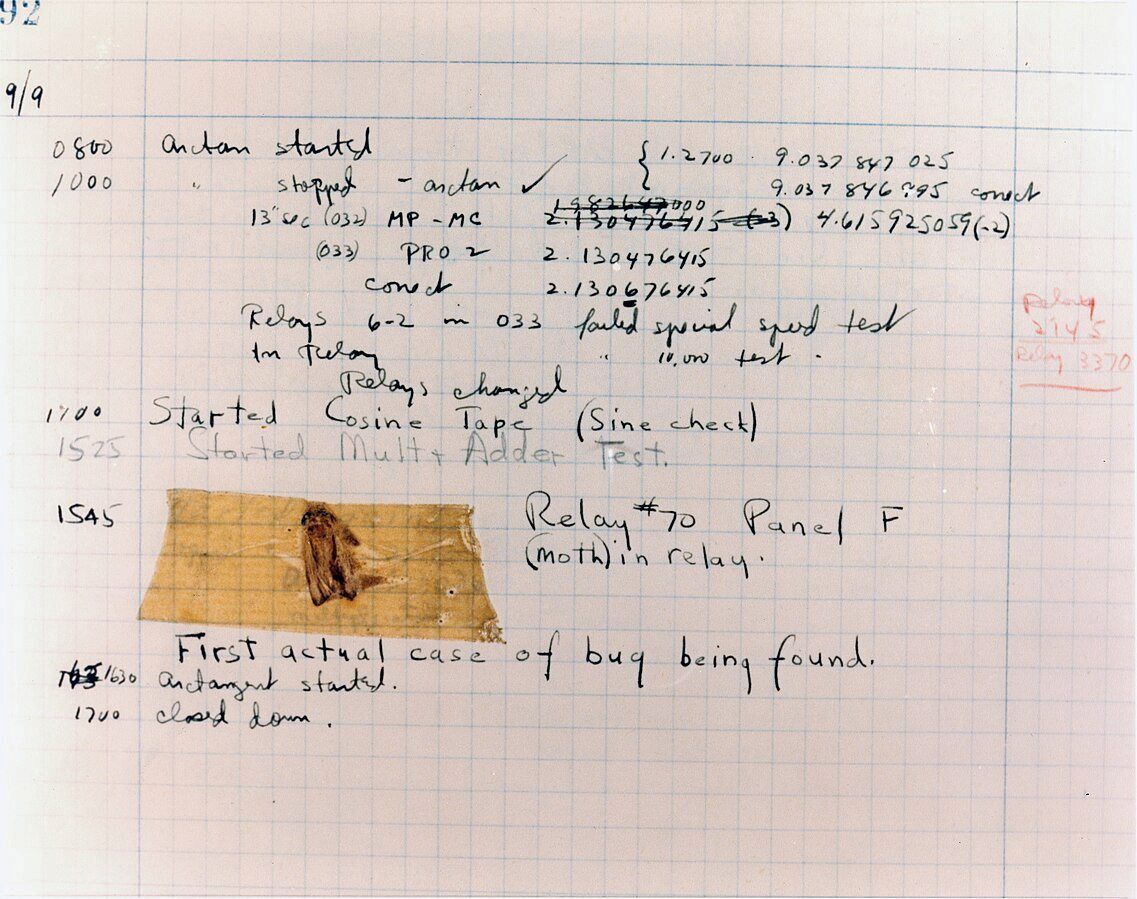 92
9/9
0800 arctan started { 1.2700 9.037 847 025
1000 " stopped - arctan ✓ 9.037 846 995 correct
13" sec (032) MP - MC 2.130476415 (-3) 4.615925059(-2)
(033) PRO 2 2.130476415
correct 2.130676415
Relays 6-2 in 033 failed special speed test
In Relay " 10.000 test .
Relay
2145
Relay 3370
Relays changed
1700 Started Cosine Tape (Sine check)
1525 Started Mult + Adder Test.
1545 Relay #70 Panel F
(moth) in relay.
First actual case of bug being found.
1630 arctangent started.
1700 closed down .